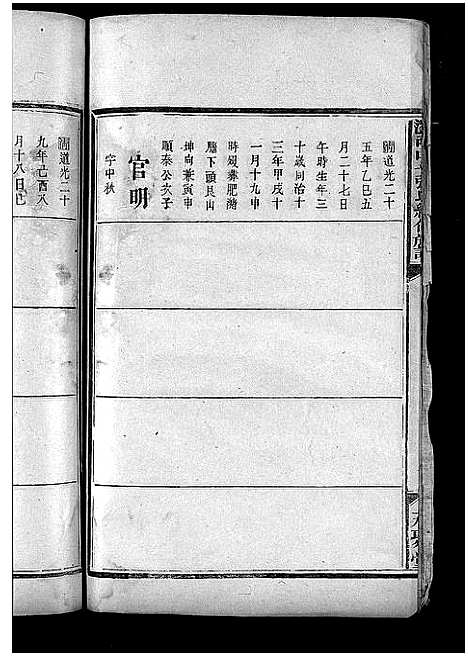 湖道光二十
五年乙巳五
月二十七日
午時生年三
十歲同治十
三年甲戌十
一月十九申
時歿葬肥湾
廳下頭艮山
坤向兼寅申
順泰公次子
官明
字中秋
湖道光二十
九年己酉八
月十八日巳